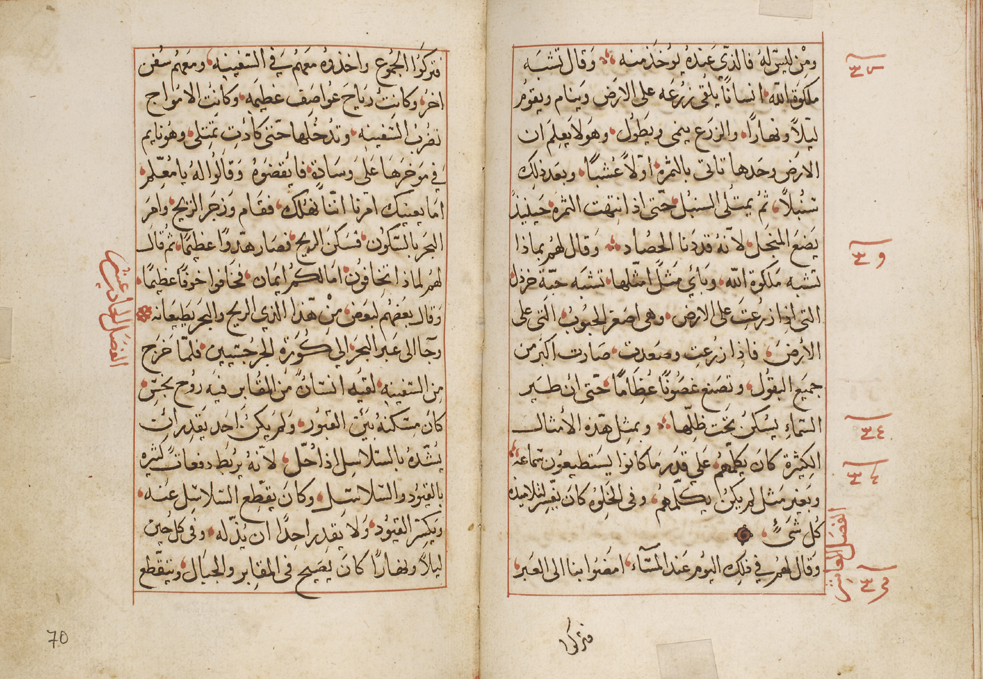 ومن ليس له فالذي عنده يوخذ منه وقال تشبه
ملكوة الله انساناً يلقي زرعه على الارض وينام ويقوم
ليلاً ونهاراً والزرع ينمى ويطول وهو لا يعلم ان
الارض وحدها تاتى بالثمرة اولاً عشباً وبعد ذلك
سنبلاً ثم يمتلى السنبل حتى اذا انتهت الثمرة حينيذٍ
يضع المنجل لانه قد دنا الحصاد وقال لهم بماذا
تشبه ملكوة الله وباي مثل امثلها تشبه حبة خردل
التى اذا زرعت على الارض وهى اصغر الحبوب التى على
الارض فاذا زرعت وصعدت صارت اكبر من
جميع البقول وتصنع غصوناً عظاماً حتى ان طير
السماء يسكن تحت ظلها وبمثل هذه الامثال
الكثيرة كان يكلمهم على قدر ما كانوا يستطيعون سماعه
وبغير مثل لم يكن يكلمهم وفى الخلوة كان يفسر لتلاميذه
كل شيء
وقال لهم في ذلك اليوم عند المساء امضوا بنا الى العبر
الفصل العاشر
فتركوا
فتركوا الجموع واخذوه معهم في السفينه ومعهم سفن
اخر وكانت رياح عواصف عظيمه وكانت الامواج
تضرب السفينه وتدخلها حتى كادت تمتلى وهو نايم
في موخرها على وسادة فايقضوه وقالوا له يا معلم
اما يعنيك امرنا اننا نهلك فقام وزجر الريح وامر
البحر بالسكون فسكن الريح وصار هدواً عظيماً ثم قال
لهم لماذا تخافون اما لكم ايمان فخافوا خوفاً عظيماً
وقال بعضهم لبعض من هذا الذي الريح والبحر يطيعانه
وجا الى عبر البحر الى كورة الجرجسيين فلما خرج
من السفينه لقيه انسان من المقابر فيه روح نجس
كان مسكنه بين القبور ولم يكن احد يقدر ان
يشده بالسلاسل لانه يربط دفعات كثيره
بالقيود والسلاسل وكان يقطع السلاسل عنه
ويكسر القيود ولا يقدر احداً ان يذلله وفى كل حين
ليلاً ونهاراً كان يصيح فى المقابر والجبال ويتقطع
الفصل الحادي عشر
70